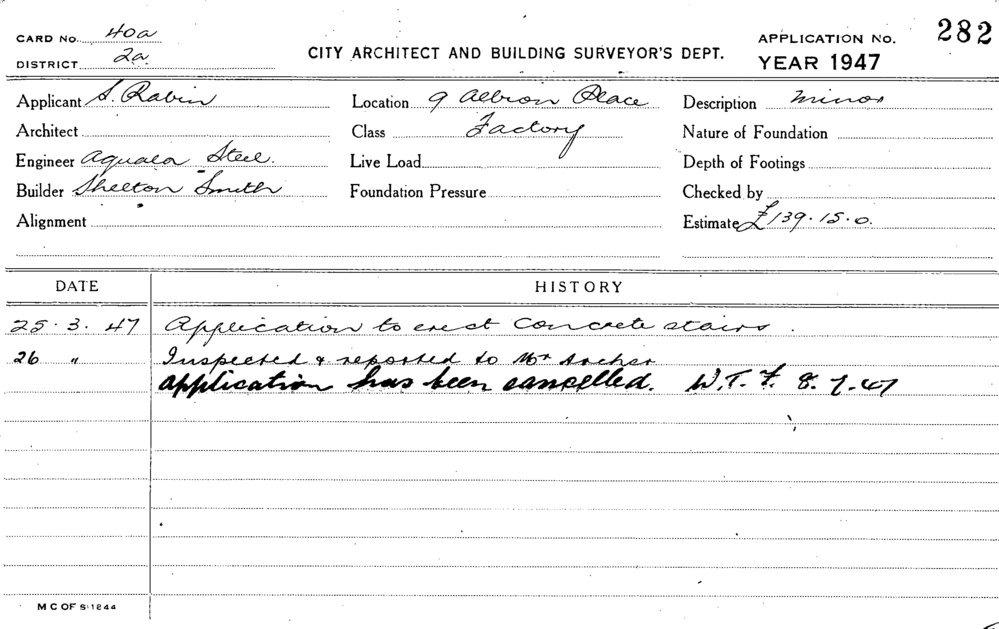 CARD No. 40a
DISTRICT 2a
CITY ARCHITECT AND BUILDING SURVEYOR'S DEPT.
APPLICATION No. 282
YEAR 1947
Applicant S. Rabin
Location 9 Albion Place
Description minor
Architect
Class Factory
Nature of Foundation
Engineer Steel.
Live Load
Depth of Footings
Builder Shelton Smith
Foundation Pressure
Checked by
Alignment
Estimate £139.15.0.
DATE HISTORY
25.3.47 Application to erect concrete stairs.
26 " Inspected & reported to Mr Archer
application has been cancelled. W.T.F. 8.7.47
M C OF S·1244